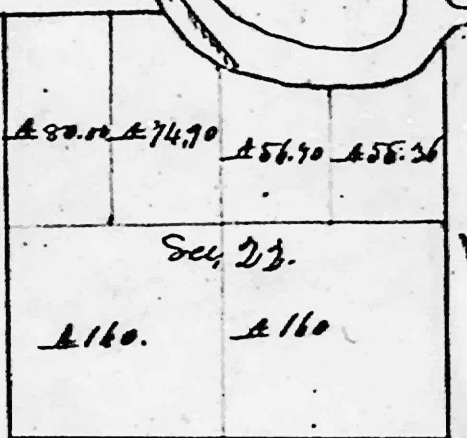 A 80.00 A 74,90 A 56.70 A 55.36
Sec, 22.
A 160. A 160